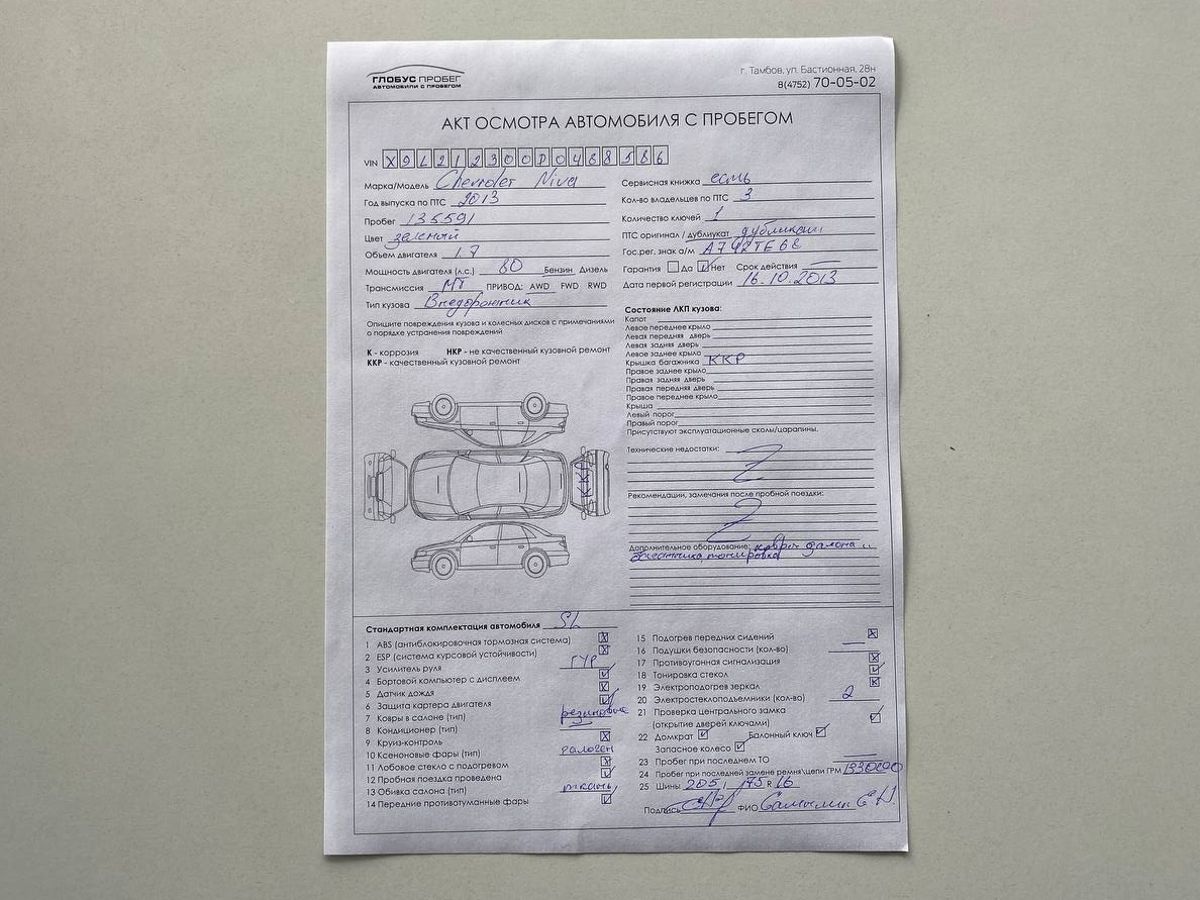 ГЛОБУС ПРОБЕГ
АВТОМОБИЛИ С ПРОБЕГОМ
г. Тамбов, ул. Бастионная, 28н
8(4752) 70-05-02
АКТ ОСМОТРА АВТОМОБИЛЯ С ПРОБЕГОМ
VIN X9L212300D0488586
Марка/Модель Chevrolet Niva
Год выпуска по ПТС 2013
Пробег 135591
Цвет зеленый
Объем двигателя 1.7
Мощность двигателя (л.с.) 80 Бензин Дизель
Трансмиссия МТ ПРИВОД: AWD FWD RWD
Тип кузова Внедорожник
Опишите повреждения кузова и колесных дисков с примечаниями
о порядке устранения повреждений
К - коррозия НКР - не качественный кузовной ремонт
ККР - качественный кузовной ремонт
ККР
Сервисная книжка есть
Кол-во владельцев по ПТС 3
Количество ключей 1
ПТС оригинал / дубликат дубликат
Гос.рег. знак а/м А742ТЕ68
Гарантия Да Нет Срок действия —
Дата первой регистрации 16.10.2013
Состояние ЛКП кузова:
Капот
Левое переднее крыло
Левая передняя дверь
Левая задняя дверь
Левое заднее крыло
Крышка багажника ККР
Правое заднее крыло
Правая задняя дверь
Правая передняя дверь
Правое переднее крыло
Крыша
Левый порог
Правый порог
Присутствуют эксплуатационные сколы/царапины.
Технические недостатки:
Рекомендации, замечания после пробной поездки:
Дополнительное оборудование: коврик салона и
багажника, тонировка
Стандартная комплектация автомобиля SL
1 ABS (антиблокировочная тормозная система)
2 ESP (система курсовой устойчивости)
3 Усилитель руля ГУР
4 Бортовой компьютер с дисплеем
5 Датчик дождя
6 Защита картера двигателя
7 Ковры в салоне (тип) резиновые
8 Кондиционер (тип) —
9 Круиз-контроль
10 Ксеноновые фары (тип) галоген
11 Лобовое стекло с подогревом
12 Пробная поездка проведена
13 Обивка салона (тип) ткань
14 Передние противотуманные фары
15 Подогрев передних сидений
16 Подушки безопасности (кол-во) —
17 Противоугонная сигнализация
18 Тонировка стекол
19 Электроподогрев зеркал
20 Электростеклоподъемники (кол-во) 2
21 Проверка центрального замка
(открытие дверей ключами)
22 Домкрат Балонный ключ
Запасное колесо
23 Пробег при последнем ТО
24 Пробег при последней замене ремня\цепи ГРМ
25 Шины 205 / 75 R 16
Подпись ФИО